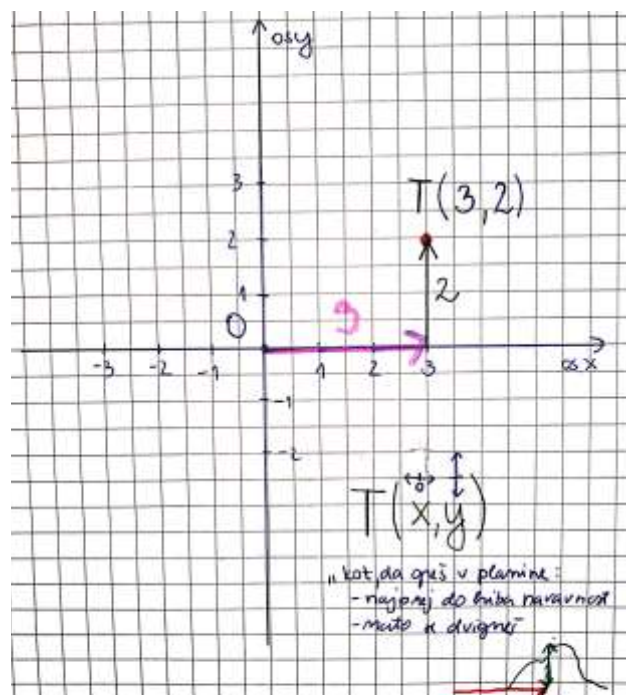 os y
3
T(3,2)
2
2
1
3
0
-3 -2 -1 1 2 3 os x
-1
-2
T(x,y)
"kot, da greš v planine:
- najprej do hriba naravnost
- nato se dvigneš